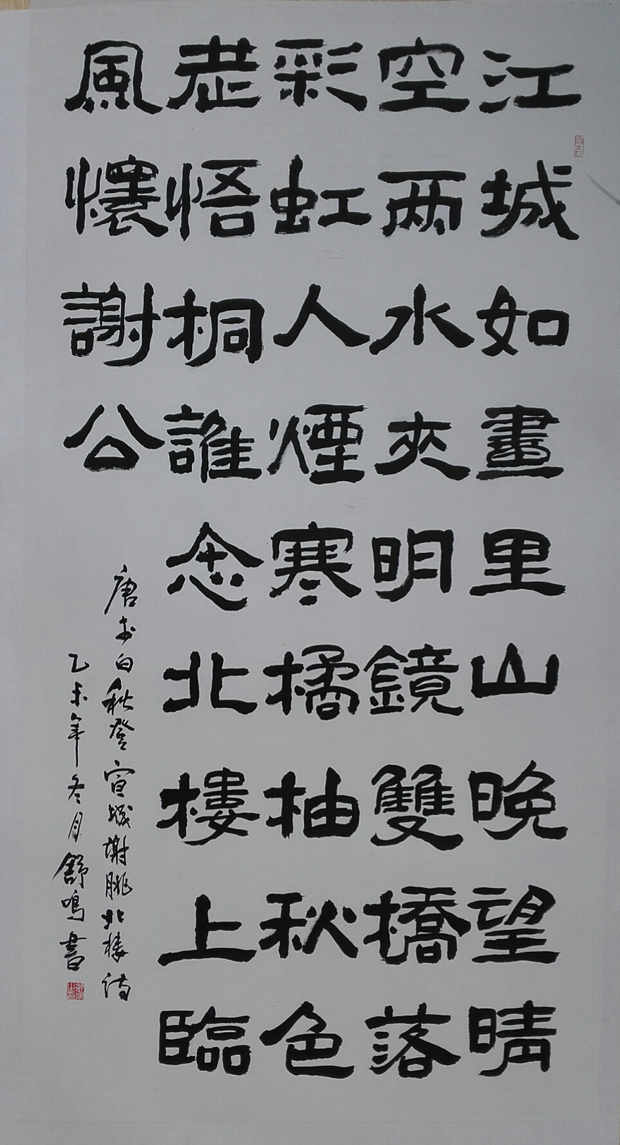 江城如畫里山晚望晴
空两水夹明鏡雙橋落
彩虹人煙寒橘柚秋色
老悟桐誰念北樓上臨
風懷謝公
唐李白秋登宣城謝朓北樓詩
乙未年冬月舒鳴書